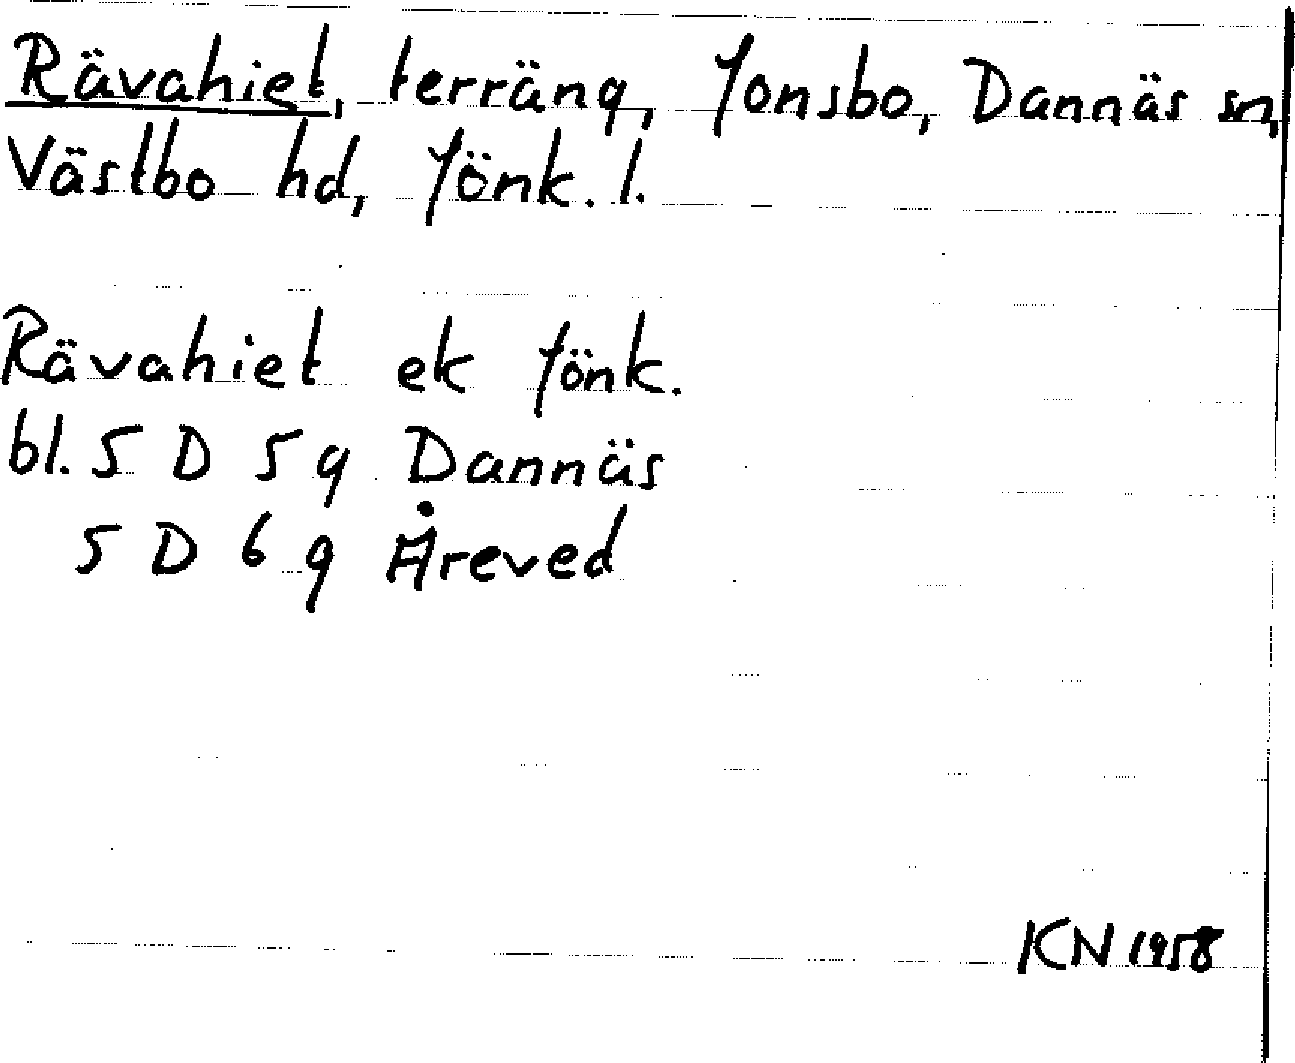 Rävahiet, terräng, Jonsbo, Dannäs sn,
Västbo hd, Jönk. l.
Rävahiet ek Jönk.
bl. 5 D 5 g Dannäs
5 D 6 g Åreved
KN 1958